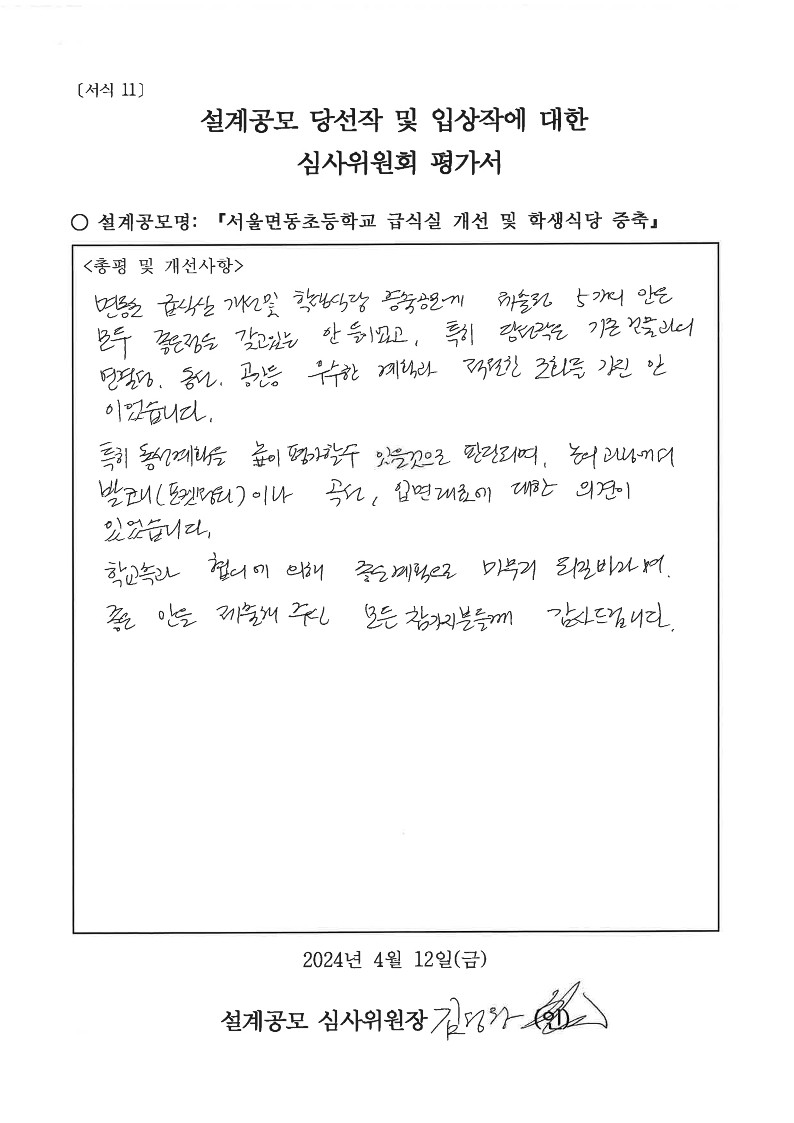 〔서식 11〕
설계공모 당선작 및 입상작에 대한
심사위원회 평가서
○ 설계공모명: 『서울면동초등학교 급식실 개선 및 학생식당 증축』
<총평 및 개선사항>
면동초 급식실 개선및 학생식당 증축공모에 제출된 5개의 안은
모두 좋은점을 갖고있는 안 들이었고, 특히 당선작은 기존건물과의
연결성, 동선, 공간등 우수한 계획과 적절한 조화를 가진 안
이었습니다.
특히 동선계획을 높이 평가할수 있을것으로 판단되며, 논의 과정에서
발코니(포켓데크)이나 곡선, 입면재료에 대한 의견이
있었습니다.
학교측과 협의에 의해 좋은계획으로 마무리 되길바라며,
좋은 안을 제출해 주신 모든 참가자분들께 감사드립니다.
2024년 4월 12일(금)
설계공모 심사위원장 김 (인)